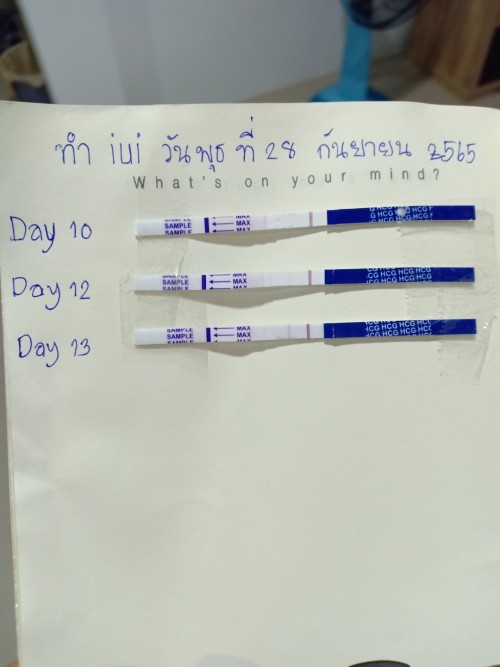 ทำ iui วันพุธ ที่ 28 กันยายน 2565
What's on your mind?
Day 10
SAMPLE
SAMPLE
MAX
MAX
HCG HCG HCG
HCG HCG HCG
Day 12
SAMPLE
SAMPLE
MAX
MAX
HCG HCG HCG
HCG HCG HCG
Day 13
SAMPLE
SAMPLE
MAX
MAX
HCG HCG HCG
HCG HCG HCG